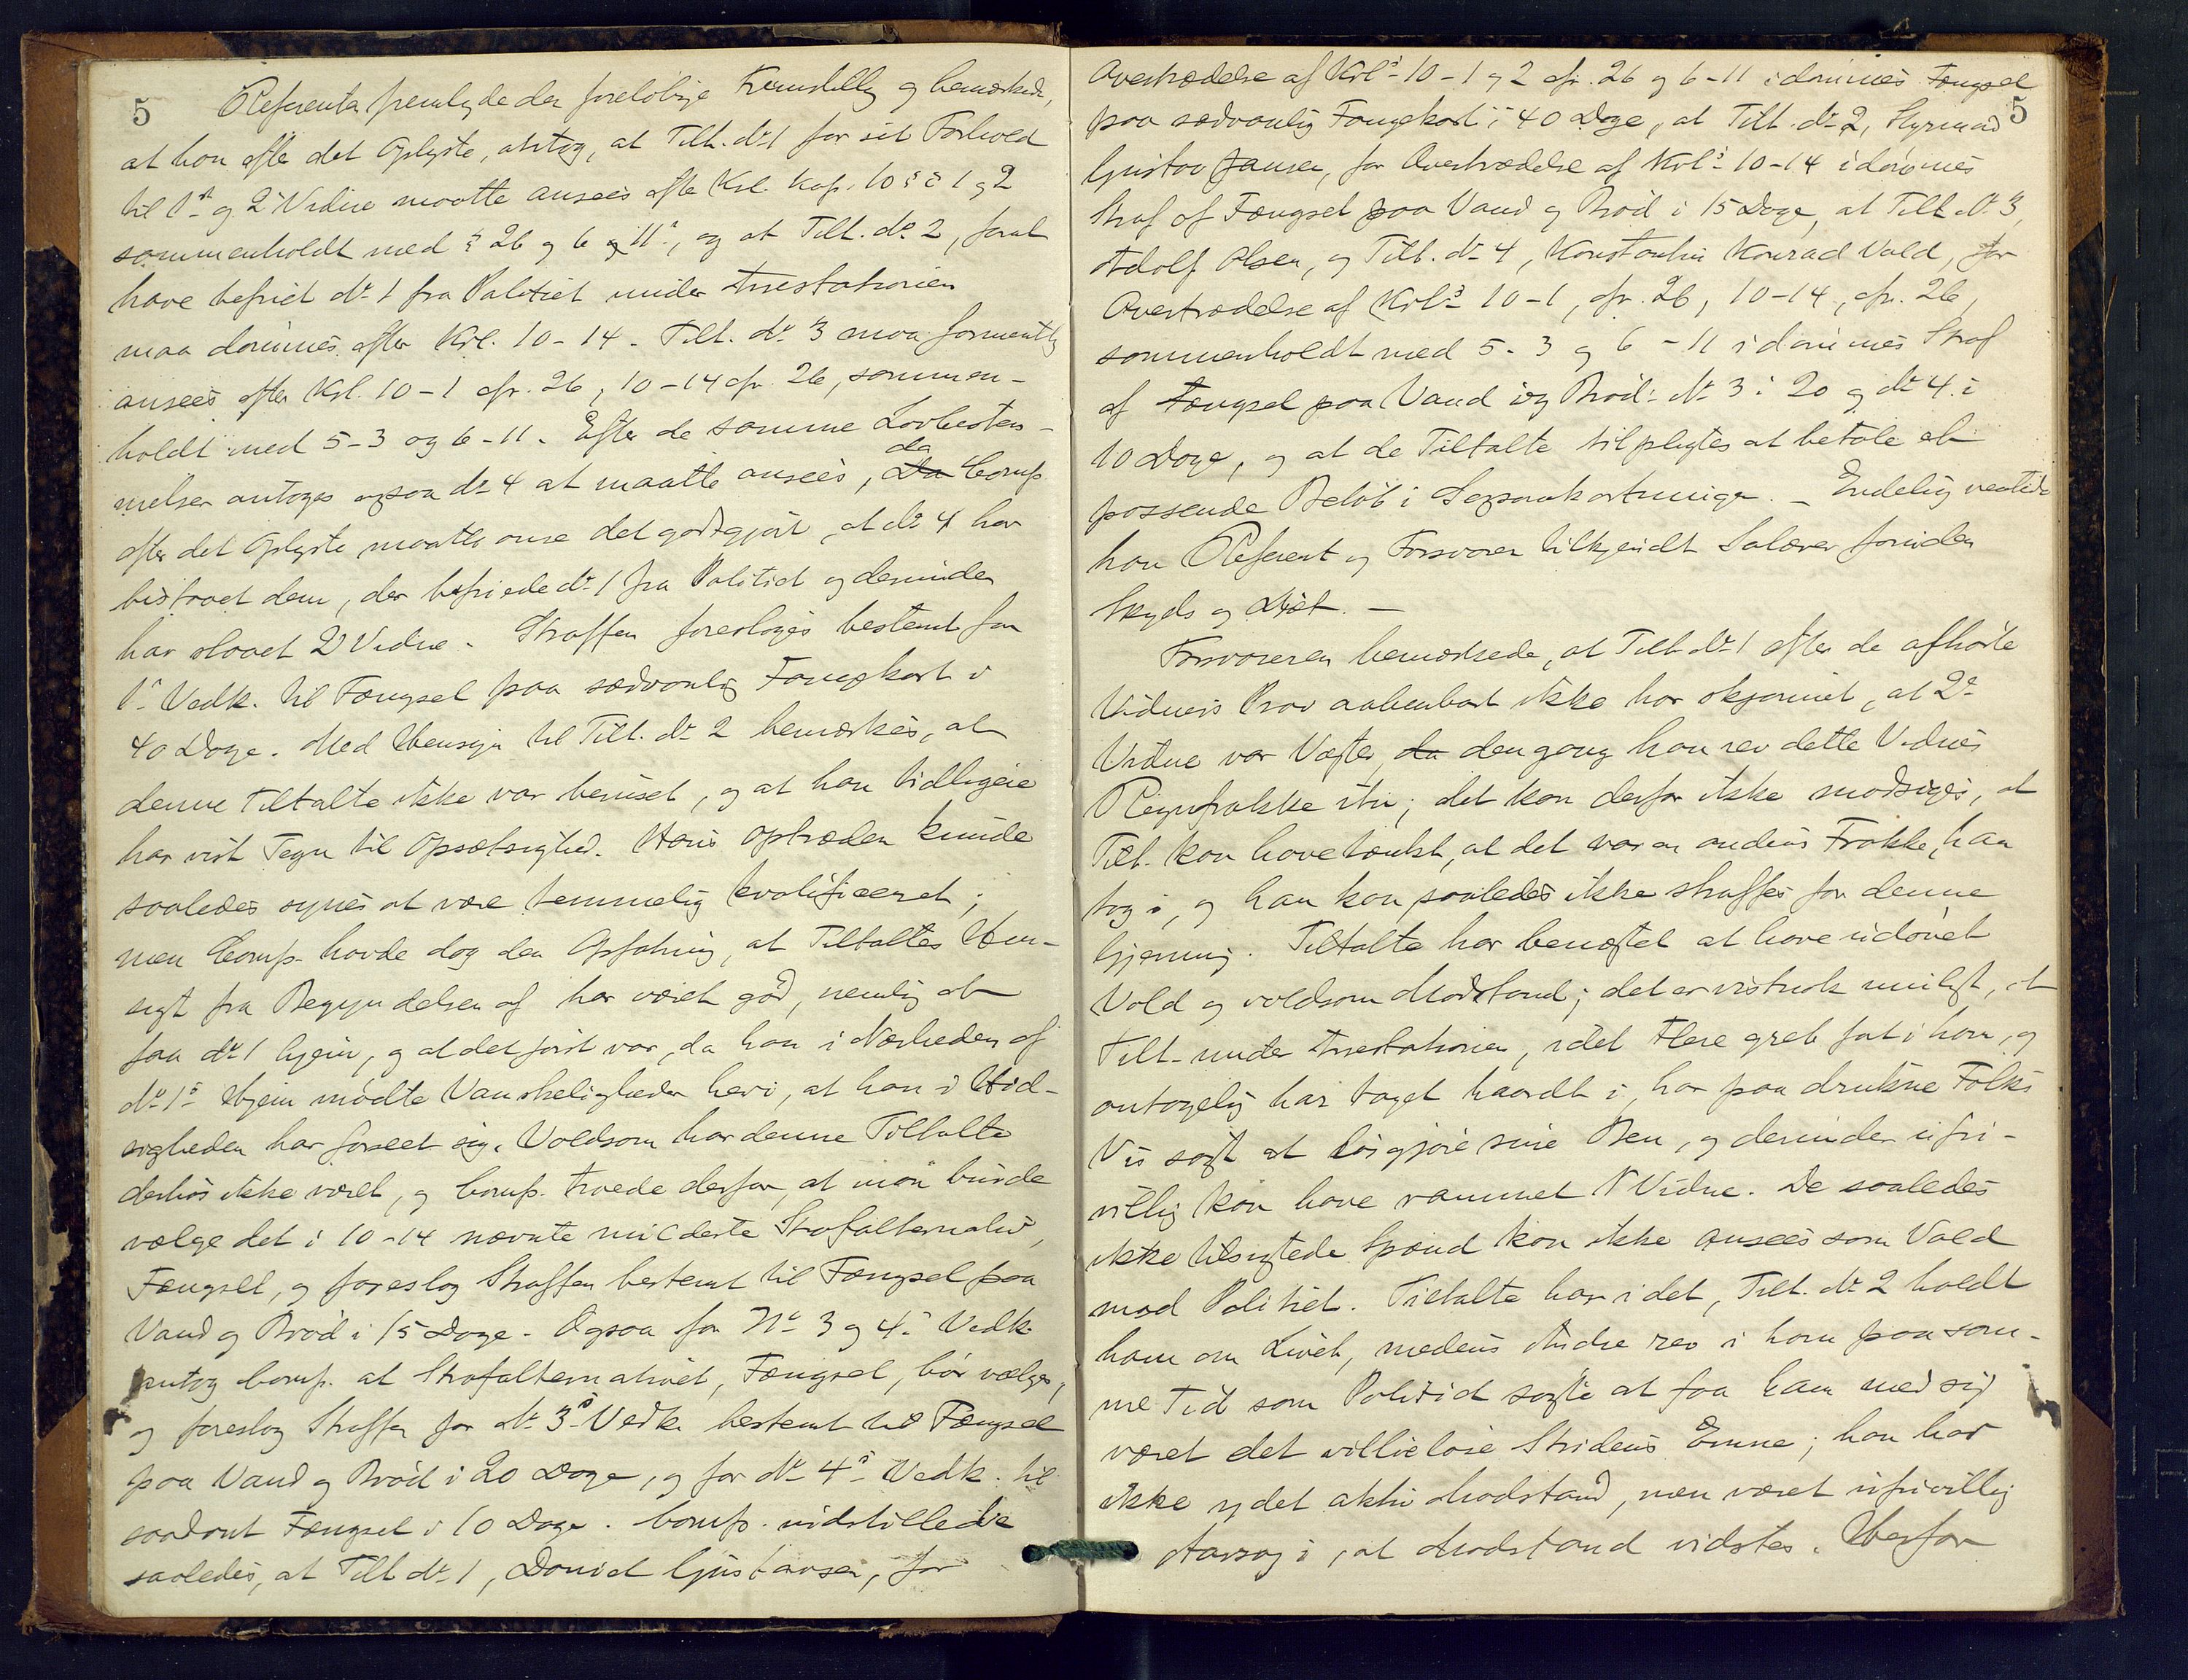 5
Referenten fremlagde den foreløbige Fremstilling og bemærkede,
at han efter det Oplyste, antog, at Tilt. No 1 for sit Forhold
til 1st og 2t Vidne maatte ansees efter Krl. Kap. 10 §§ 1 og 2
sammenholdt med § 26 og 6 og 11, og at Tilt. No 2, for at
have befriet No 1 fra Politiet under Arrestationen
maa dømmes efter Krl. 10-14. Tilt. No 3 maa formentlig
ansees efter Krl. 10-1 cfr. 26, 10-14 cfr. 26, sammen-
holdt med 5-3 og 6-11. Efter de samme Lovbestem-
melser antoges ogsaa No 4 at maatte ansees, da Comp.
efter det Oplyste maatte anse det godtgjort, at No 4 har
bistaaet dem, der befriede No 1 fra Politiet og derunder
har slaaet 2 Vidne. Straffen foresloges bestemt for
1s Vedk. til Fængsel paa sædvanlig Fangekost i
40 Dage. Med Hensyn til Tilt. No 2 bemærkes, at
denne Tiltalte ikke var beruset, og at han tidligere
har vist Tegn til Opsætsighed. Hans Optræden kunde
saaledes synes at være temmelig kvalificeret;
men Comp. havde dog den Opfatning, at Tiltaltes Hen-
sigt fra Begyndelsen af har været god, nemlig at
faa No 1 hjem, og at det først var, da han i Nærheden af
No 1s Hjem mødte Vanskeligheder heri, at han i Hid-
sigheden har forseet sig. Voldsom har denne Tiltalte
derhos ikke været, og Comp. troede derfor, at man burde
vælge det i 10-14 nævnte mildeste Strafalternativ,
Fængsel, og foreslog Straffen bestemt til Fængsel paa
Vand og Brød i 15 Dage. Ogsaa for No 3 og 4s Vedk.
antog Comp. at Strafalternativet, Fængsel, bør vælges,
og foreslog Straffen for No 3s Vedk. bestemt til Fængsel
paa Vand og Brød i 20 Dage, og for No 4s Vedk. til
saadant Fængsel i 10 Dage. Comp. indstillede
saaledes, at Tilt No 1, Daniel Gustavsen, for
Overtrædelse af Krls 10-1 og 2 cfr. 26 og 6-11 idømmes Fængsel
5
paa sædvanlig Fangekost i 40 Dage, at Tilt. No 2, Styrmand
Gustav Jansen, for Overtrædelse af Krls 10-14 idømmes
Straf af Fængsel paa Vand og Brød i 15 Dage, at Tilt No 3,
Adolf Olsen, og Tilt. No 4, Konstantin Konrad Vold, for
Overtrædelse af Krls 10-1, cfr. 26, 10-14, cfr. 26,
sammenholdt med 5-3 og 6-11 idømmes Straf
af Fængsel paa Vand og Brød: No 3 i 20 og No 4 i
10 Dage, og at de Tiltalte tilpligtes at betale et
passende Beløb i Sagsomkostninger. – Endelig ventede
han Referent og Forsvarer tilkjendt Salærer foruden
Skyds og Diæt. –
Forsvareren bemærkede, at Tilt No 1 efter de afhørte
Vidners Prov aabenbart ikke har skjønnet, at 2t
Vidne var Vægter, da dengang han rev dette Vidnes
Regnfrakke itu; det kan derfor ikke modsiges, at
Tilt. kan have tænkt, at det var en andens Frakke, han
tog i, og han kan saaledes ikke straffes for denne
Gjerning. Tiltalte har benægtet at have udøvet
Vold og voldsom Modstand; det er vistnok muligt, at
Tilt. under Arrestationen, idet Flere greb fat i ham, og
antagelig har taget haardt i, har paa drukne Folks
Vis søgt at løsgjøre sine Ben, og derunder ufri-
villig kan have rammet 1 Vidne. De saaledes
ikke tilsigtede Spænd kan ikke ansees som Vold
mod Politiet. Tiltalte har idet, Tilt. No 2 holdt
ham om Livet, medens Andre rev i ham paa sam-
me Tid som Politiet søgte at faa ham med sig
været det villieløse Stridens Emne; han har
ikke ydet aktiv Modstand, men været ufrivillig
Aarsag i, at Modstand vistes. Herfor